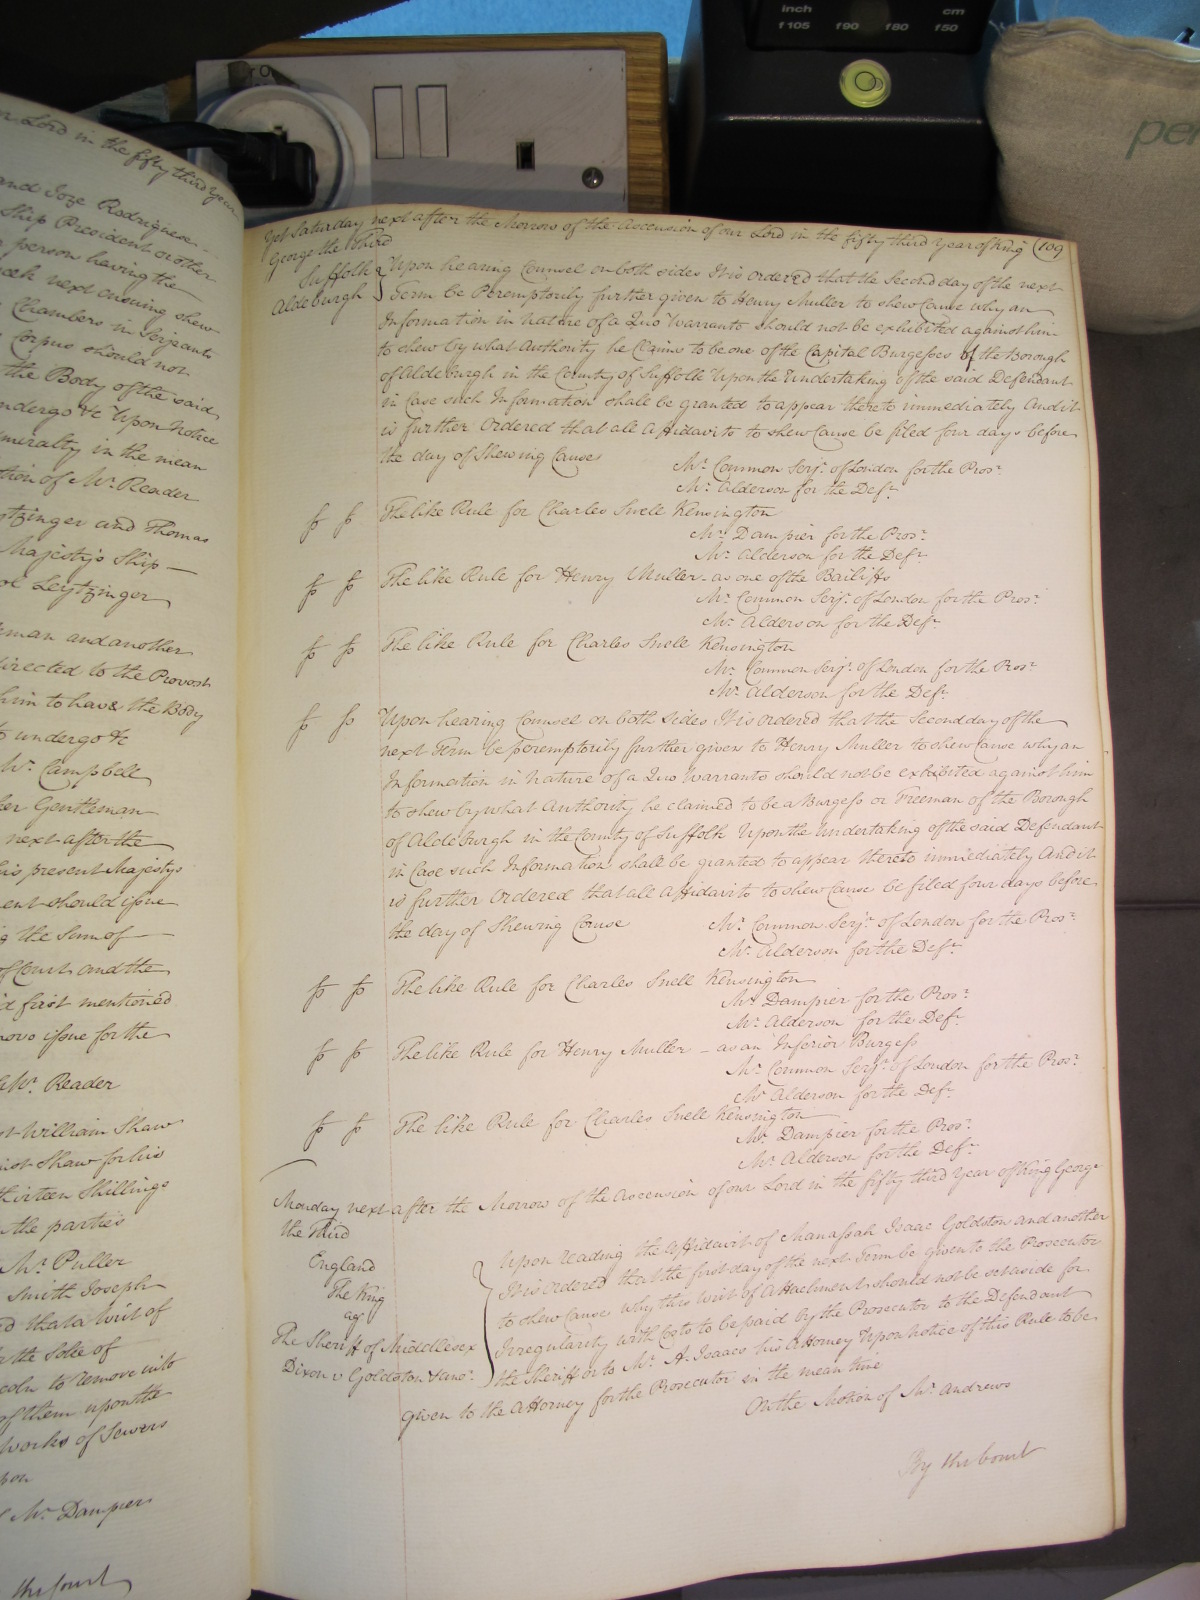 inch cm
f105 f90 f80 f50
per
Lord in the fifty third Year
and Joze Rodriguese
Ship President or other
person having the
week next ensuing shew
Chambers in Serjeants
Corpus should not
the Body of the said
undergo &c Upon Notice
in the mean
Mr. Reader
and Thomas
Majestys Ship
Leytzinger
and another
directed to the Provost
him to have the Body
undergo &c
Mr. Campbell
Gentleman
next after the
his present Majestys
should issue
the Sum of
of Court and the
first mentioned
issue for the
Mr. Reader
William Shaw
Shaw for his
thirteen Shillings
the parties
Mr. Puller
Smith Joseph
that a Writ of
the Soke of
to remove into
of them upon the
works of Sewers
Mr. Dampier
the Court
Yet Saturday next after the Morrow of the Ascension of our Lord in the fifty third Year of King (109
George the Third
Suffolk } Upon hearing Counsel on both sides It is ordered that the Second day of the next
Aldeburgh } Term be Peremptorily further given to Henry Muller to shew Cause why an
Information in Nature of a Quo Warranto should not be exhibited against him
to shew by what Authority he Claims to be one of the Capital Burgesses of the Borough
of Aldeburgh in the County of Suffolk Upon the Undertaking of the said Defendant
in Case such Information shall be granted to appear thereto immediately And it
is further Ordered that all Affidavits to shew Cause be filed four days before
the day of Shewing Cause
Mr. Common Serjt. of London for the Prosr.
Mr. Alderson for the Deft.
The like Rule for Charles Snell Kensington
Mr. Dampier for the Prosr.
Mr. Alderson for the Deft.
The like Rule for Henry Muller - as one of the Bailiffs
Mr. Common Serjt. of London for the Prosr.
Mr. Alderson for the Deft.
The like Rule for Charles Snell Kensington
Mr. Common Serjt. of London for the Prosr.
Mr. Alderson for the Deft.
Upon hearing Counsel on both sides It is ordered that the Second day of the
next Term be peremptorily further given to Henry Muller to shew Cause why an
Information in Nature of a Quo Warranto should not be exhibited against him
to shew by what Authority he claimed to be a Burgess or Freeman of the Borough
of Aldeburgh in the County of Suffolk Upon the Undertaking of the said Defendant
in Case such Information shall be granted to appear thereto immediately And it
is further Ordered that all Affidavits to shew Cause be filed four days before
the day of Shewing Cause Mr. Common Serjt. of London for the Prosr.
Mr. Alderson for the Deft.
The like Rule for Charles Snell Kensington
Mr. Dampier for the Prosr.
Mr. Alderson for the Deft.
The like Rule for Henry Muller - as an Inferior Burgess
Mr. Common Serjt. of London for the Prosr.
Mr. Alderson for the Deft.
The like Rule for Charles Snell Kensington
Mr. Dampier for the Prosr.
Mr. Alderson for the Deft.
Monday next after the Morrow of the Ascension of our Lord in the fifty third Year of King George
the Third
England
The King
agt
The Sheriff of Middlesex
Dixon v Goldston & anor.
Upon reading the Affidavit of Manassah Isaac Goldston and another
It is Ordered that the first day of the next Term be given to the Prosecutor
to shew Cause why this Writ of Attachment should not be set aside for
Irregularity with Costs to be paid by the Prosecutor to the Defendant
the Sheriff or to Mr. A. Isaacs his Attorney Upon Notice of this Rule to be
given to the Attorney for the Prosecutor in the mean time
On the Motion of Mr. Andrews
By the Court